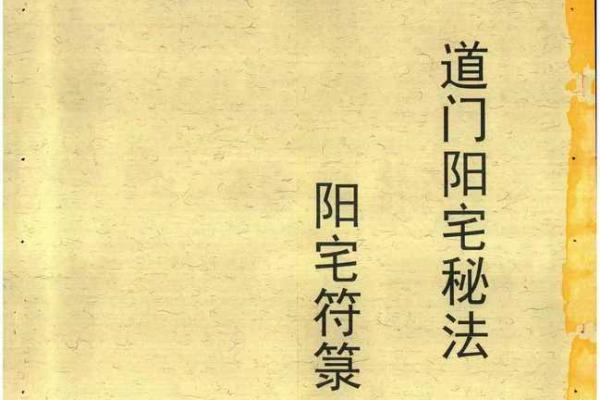 道门阳宅秘法
阳宅符箓